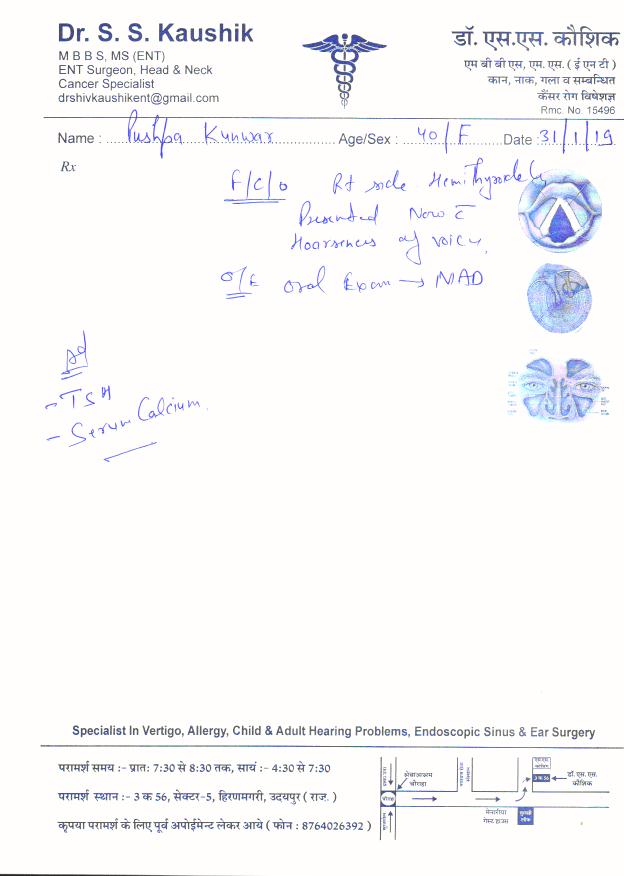 Dr. S. S. Kaushik
M B B S, MS (ENT)
ENT Surgeon, Head & Neck
Cancer Specialist
drshivkaushikent@gmail.com
डॉ. एस.एस. कौशिक
एम बी बी एस, एम. एस. ( ई एन टी )
कान, नाक, गला व सम्बन्धित
कैंसर रोग विषेशज्ञ
Rmc. No. 15496
Name : Pushpa Kunwar Age/Sex : 40/F Date : 31/1/19
Rx
F/C/O Rt side
Presented Now c̄
Hoarseness of voice,
O/E Oral Exam → NAD
Ad
- TSH
- Serum Calcium.
Specialist In Vertigo, Allergy, Child & Adult Hearing Problems, Endoscopic Sinus & Ear Surgery
परामर्श समय :- प्रातः 7:30 से 8:30 तक, सायं : - 4:30 से 7:30
परामर्श स्थान : - 3 क 56, सेक्टर-5, हिरणमगरी, उदयपुर ( राज. )
कृपया परामर्श के लिए पूर्व अपोईमेन्ट लेकर आये ( फोन : 8764026392 )
सेवाआश्रम
चौराहा
3 क 56
डॉ. एस. एस.
कौशिक
मेनारीया
गेस्ट हाउस